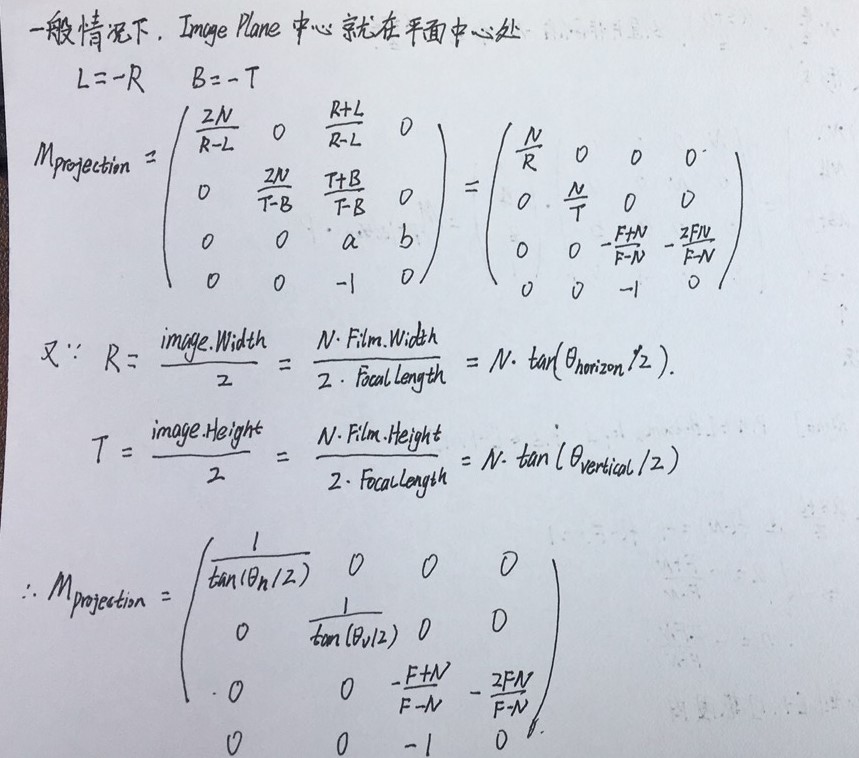 一般情况下, Image Plane 中心就在平面中心处
L=-R B=-T
M_projection = ( 2N/(R-L) 0 (R+L)/(R-L) 0 = ( N/R 0 0 0
0 2N/(T-B) (T+B)/(T-B) 0 0 N/T 0 0
0 0 a b 0 0 -(F+N)/(F-N) -2FN/(F-N)
0 0 -1 0 ) 0 0 -1 0 )
又∵ R = image.Width/2 = N·Film.Width/(2·Focal Length) = N·tan(θhorizon/2).
T = image.Height/2 = N·Film.Height/(2·Focal Length) = N·tan(θvertical/2)
∴ M_projection = ( 1/tan(θh/2) 0 0 0
0 1/tan(θv/2) 0 0
0 0 -(F+N)/(F-N) -2FN/(F-N)
0 0 -1 0 )